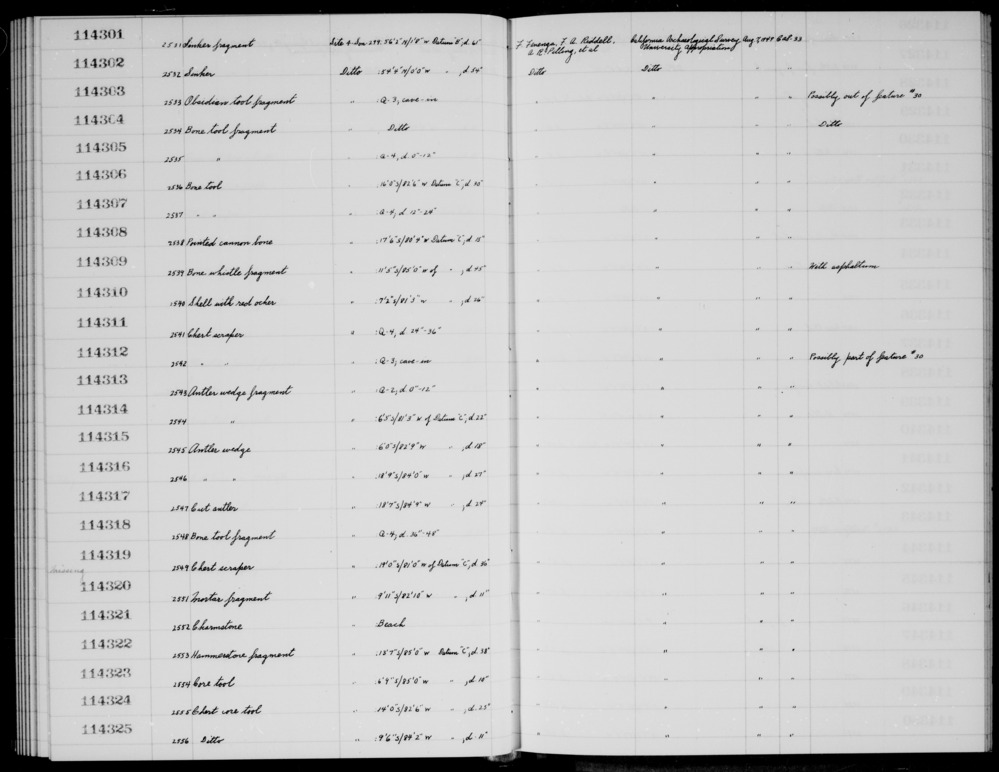 114301 2531 Sinker fragment Site 4-Son-299. 56'2" N/1'8" W Datum "B", d. 61" F. Fenenga, F. A. Riddell, A. R. Pilling, et al California Archaeological Survey Aug 7, 1949 Cal 33
University Appropriations
114302 2532 Sinker Ditto :54'4" N/0'0" W " , d. 54" Ditto Ditto " "
114303 2533 Obsidian tool fragment " :Q-3, cave-in " " " " Possibly out of feature #30
114304 2534 Bone tool fragment " Ditto " " " " Ditto
114305 2535 " " :Q-4, d. 0"-12" " " " "
114306 2536 Bone tool " :16'0" S/82'6" W Datum "C", d. 30" " " " "
114307 2537 " " " :Q-4, d. 12"-24" " " " "
114308 2538 Pointed cannon bone " :17'6" S/80'4" W Datum "C", d. 15" " " " "
114309 2539 Bone whistle fragment " :11'5" S/85'0" W of " , d. 45" " " " " With asphaltum
114310 2540 Shell with red ocher " :7'2" S/81'3" W " , d. 26" " " " "
114311 2541 Chert scraper " :Q-4, d. 24"-36" " " " "
114312 2542 " " " :Q-3, cave-in " " " " Possibly part of feature #30
114313 2543 Antler wedge fragment " :Q-2, d. 0"-12" " " " "
114314 2544 " " :6'5" S/81'3" W of Datum "C", d. 22" " " " "
114315 2545 Antler wedge " :6'0" S/82'9" W " , d. 18" " " " "
114316 2546 " " " :18'9" S/84'0" W " , d. 27" " " " "
114317 2547 Cut antler " :18'7" S/84'4" W " , d. 24" " " " "
114318 2548 Bone tool fragment " Q-4, d. 36"-48" " " " "
114319 2549 Chert scraper " :14'0" S/81'0" W of Datum "C", d. 56" " " " "
missing
114320 2551 Mortar fragment " :9'11" S/82'10" W " , d. 11" " " " "
114321 2552 Charmstone " Beach " " " "
114322 2553 Hammerstone fragment " :15'7" S/85'0" W Datum "C", d. 38" " " " "
114323 2554 Core tool " :6'9" S/85'0" W " , d. 10" " " " "
114324 2555 Chert core tool " :14'0" S/82'6" W " , d. 23" " " " "
114325 2556 Ditto " :9'6" S/84'2" W " , d. 11" " " " "